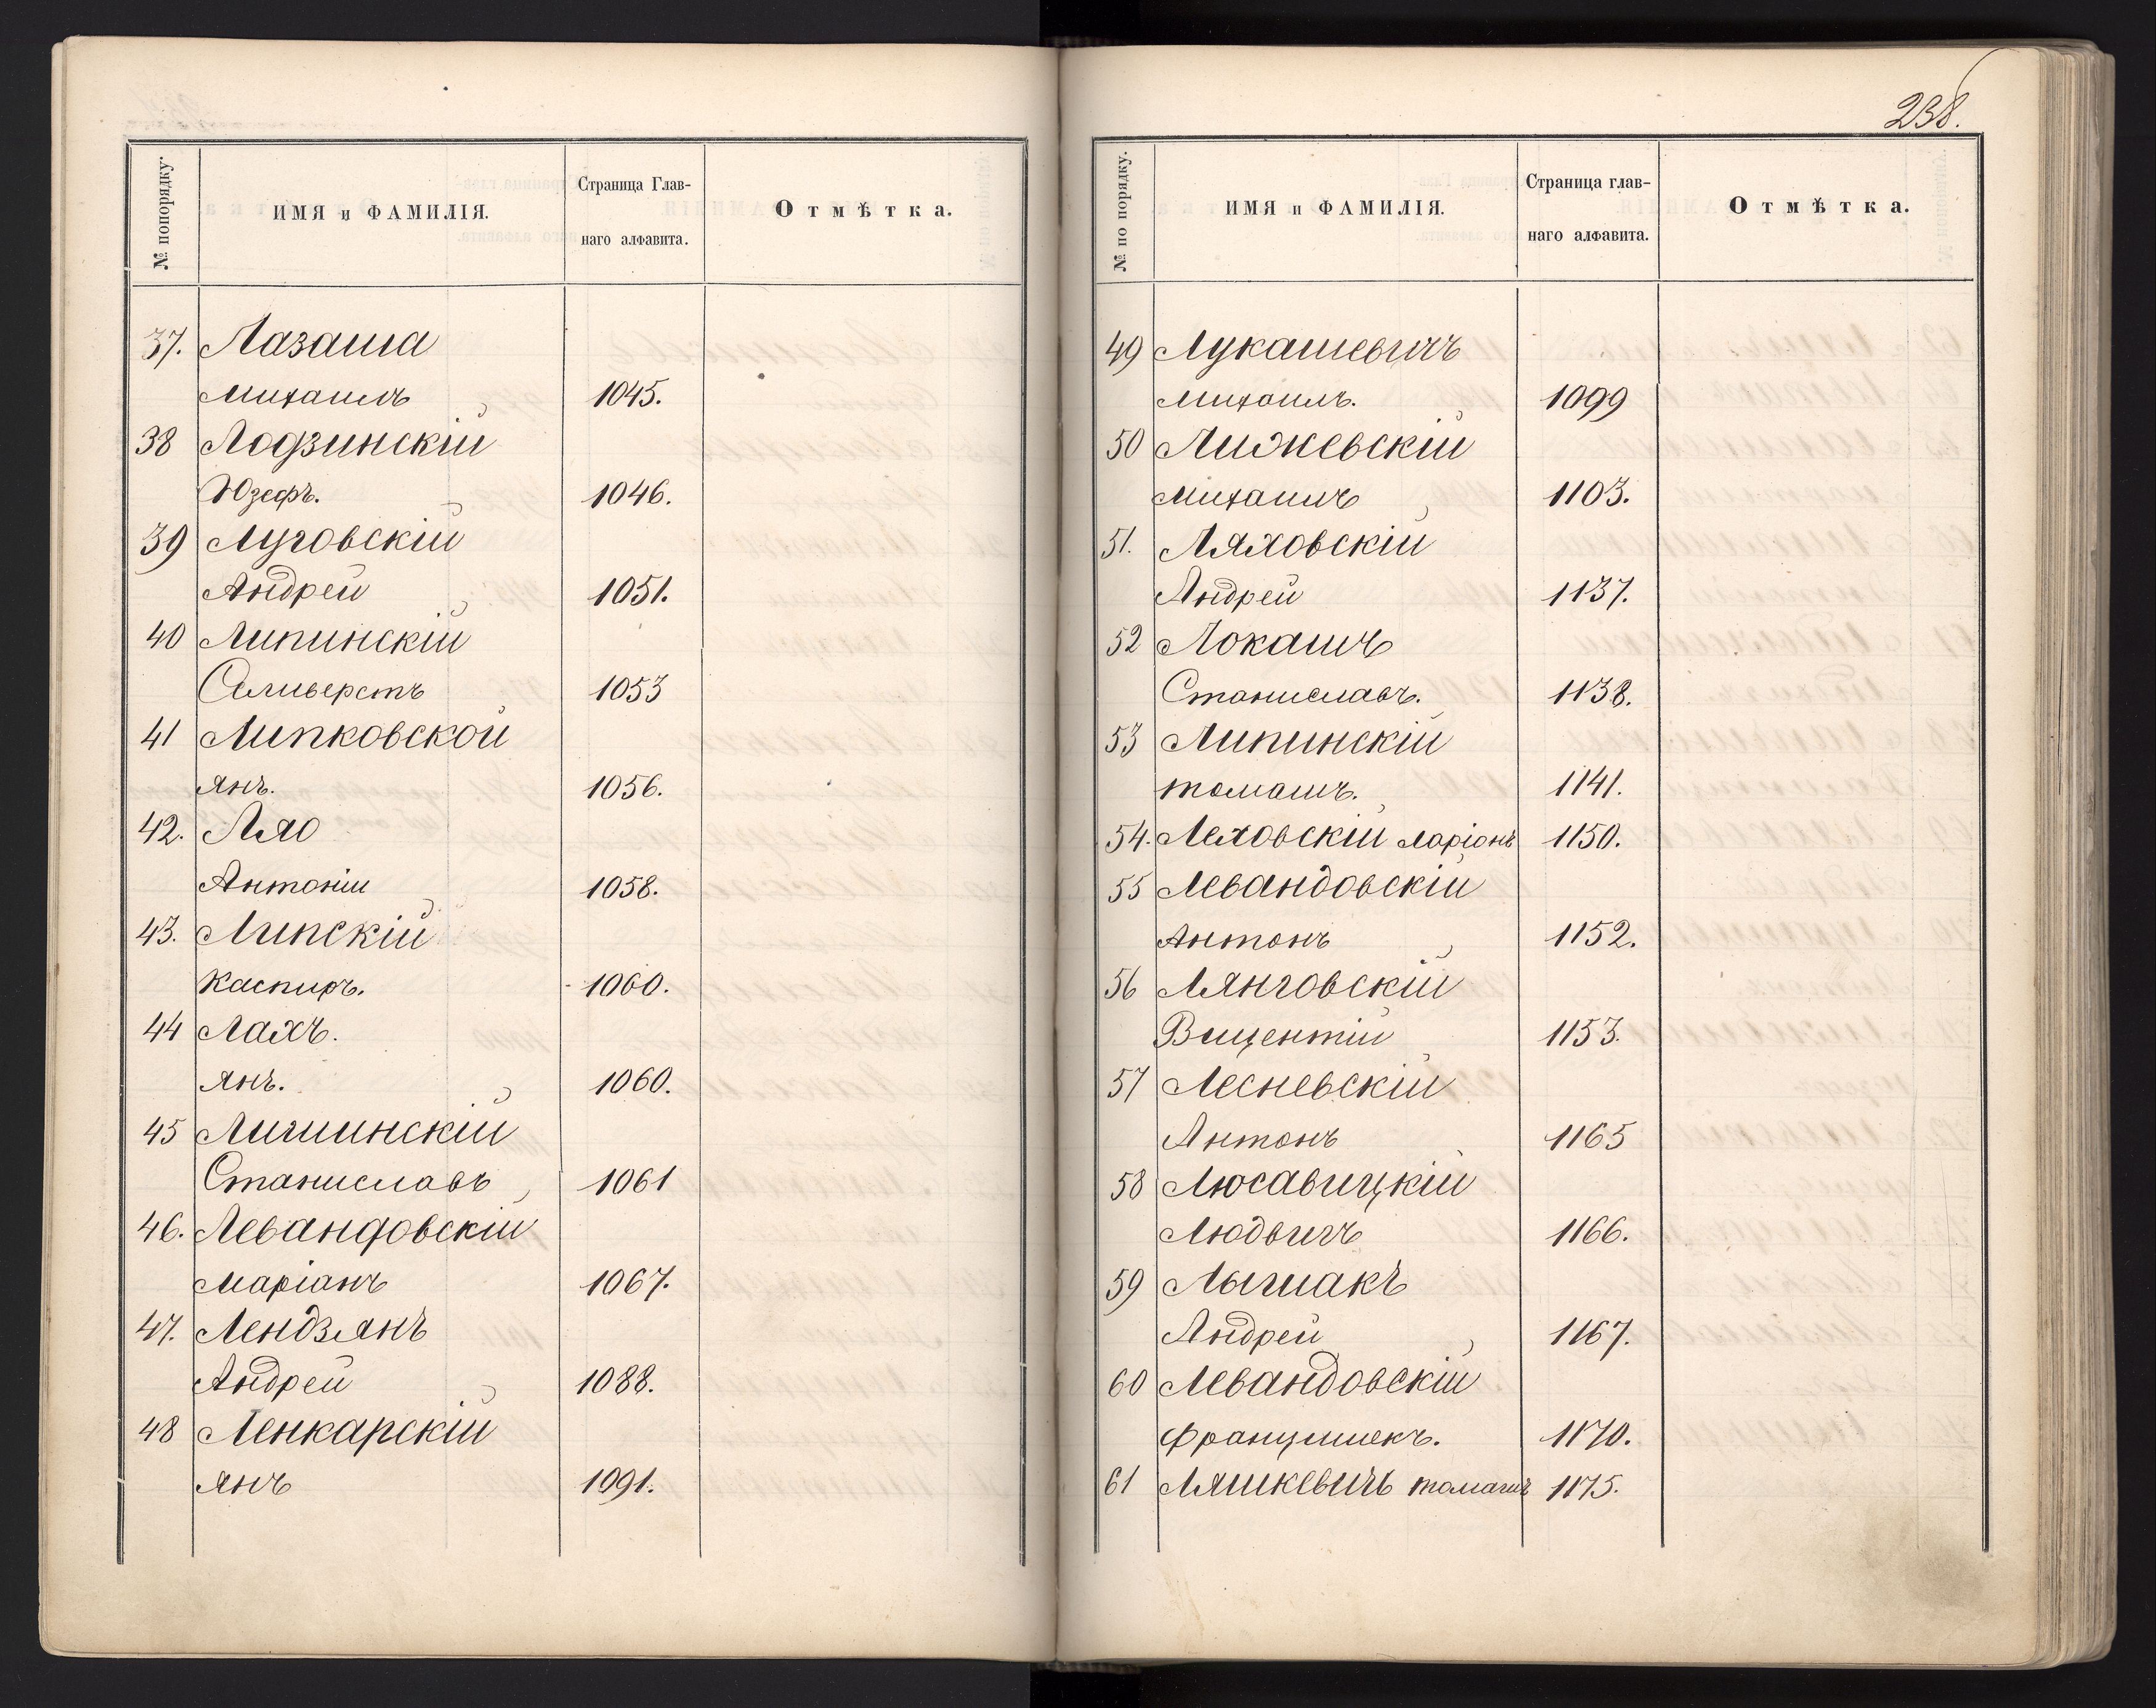 № попорядку.
ИМЯ и ФАМИЛІЯ.
Страница Глав-
наго алфавита.
Отмѣтка.
37. Лазаша
Михаилъ 1045.
38 Лодзинскій
Юзефъ. 1046.
39 Луговскій
Андрей 1051.
40 Липинскій
Сильверстъ 1053
41 Липковской
Янъ. 1056.
42. Ляо
Антоній 1058.
43. Липскій
Каспиръ. 1060.
44 Лахъ.
Янъ. 1060.
45 Личшинскій
Станиславъ 1061
46. Левандовскій
Маріанъ 1067.
47. Лендзянъ
Андрей 1088.
48 Ленкарскій
Янъ 1091.
238.
№ по порядку.
ИМЯ и ФАМИЛІЯ.
Страница глав-
наго алфавита.
Отмѣтка.
49 Лукашевичъ
Михаилъ. 1099
50 Лижевскій
Михаилъ 1103.
51. Ляховскій
Андрей 1137.
52 Локашъ
Станиславъ. 1138.
53 Липинскій
Томашъ. 1141.
54. Леховскій Ларіонъ 1150.
55 Левандовскій
Антонъ 1152.
56 Лянговскій
Вицентій 1153.
57 Лесневскій
Антонъ 1165
58 Люсавицкій
Людвигъ 1166.
59 Лышакъ
Андрей 1167.
60 Левандовскій
Францишекъ. 1170.
61 Ляшкевичъ Томашъ 1175.